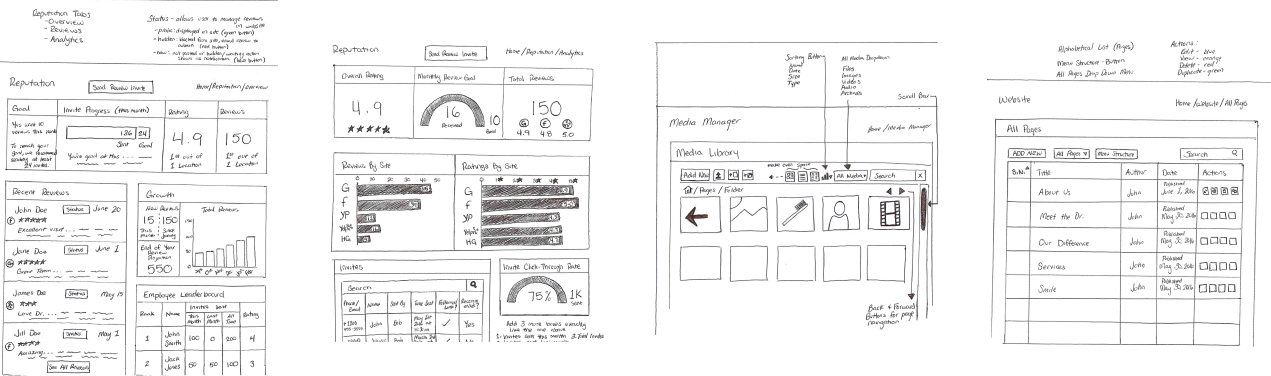 Reputation Tabs
- Overview
- Reviews
- Analytics
Status - allows user to manage reviews
on website
- public: displayed on site (green button)
Reputation
Send Review Invite
Home/Reputation/Overview
Goal
Invite Progress (this month)
Rating
Reviews
You want 10
reviews this month
To reach your
goal, we recommend
sending at least
24 invites.
136 24
Sent Goal
You're goal at this ...
4.9
1st out of
1 Location
150
1st out of
1 Location
Recent Reviews
John Doe Status June 20
f
Excellent visit...
Jane Doe Status June 1
G
Great Team...
James Doe Status May 15
Love Dr. ...
Jill Doe Status May 1
f
Amazing...
See All Reviews
Growth
New Reviews
15 150
This month
Total Reviews
End of Year
Review
Projection
550
Employee Leaderboard
Rank
Name
Invites Sent
This Month
Last Month
All Time
Rating
1 John Smith 100 0 200 4
2 Jack Jones 50 50 100 3
Reputation
Send Review Invite
Home/Reputation/Analytics
Overall Rating
Monthly Review Goal
Total Reviews
4.9
16
Received
10
Goal
150
G f
4.9 4.8 5.0
Reviews By Site
0 10 20 30 40 50
G
f
YP
HG
Ratings by Site
1 2 3 4 5
G
f
YP
HG
Invites
Search
Phone/Email
Name
Sent By
Time Sent
John Bob Yes
Invite Click-Through Rate
75%
1K
Sent
Add 3 more boxes exactly
like the one above
Sorting Buttons
Name
Date
Size
Type
All Media Dropdown
Files
Images
Videos
Audio
Archives
Scroll Bar
Media Manager
Home/Media Manager
Media Library
make even space
Add New
All Media
Search
X
/Pages/Folder
Back & Forward
Buttons for page
navigation
Alphabetical List (Pages)
Menu Structure - Button
All Pages Drop Down Menu
Actions:
Edit - blue
View - orange
Delete - red
Duplicate - green
Website
Home/Website/All Pages
All Pages
ADD NEW
All Pages
Menu Structure
Search
S.No.
Title
Author
Date
Actions
About Us John Published June 2, 2016
Meet the Dr. John Published May 30, 2016
Our Difference John Published May 30, 2016
Services John Published May 30, 2016
Smile John Published May 30, 2016